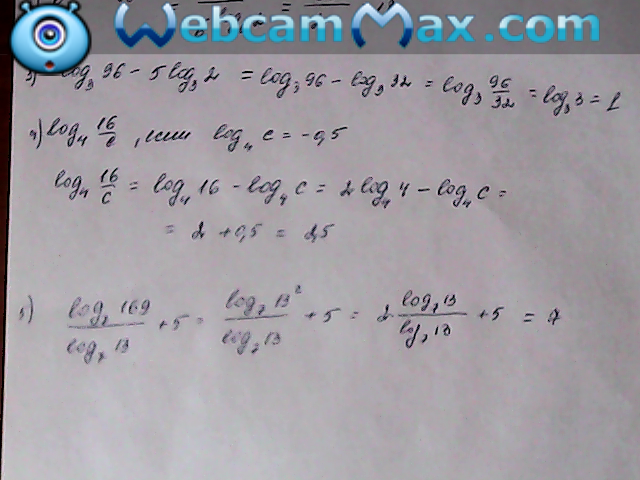 WebcamMax.com
3) log₃ 96 - 5 log₃ 2 = log₃ 96 - log₃ 32 = log₃ 96/32 = log₃ 3 = 1
4) log₄ 16/c , если log₄ c = -0,5
log₄ 16/c = log₄ 16 - log₄ c = 2 log₄ 4 - log₄ c =
= 2 + 0,5 = 2,5
5) log₇ 169 / log₇ 13 + 5 = log₇ 13² / log₇ 13 + 5 = 2 log₇ 13 / log₇ 13 + 5 = 7